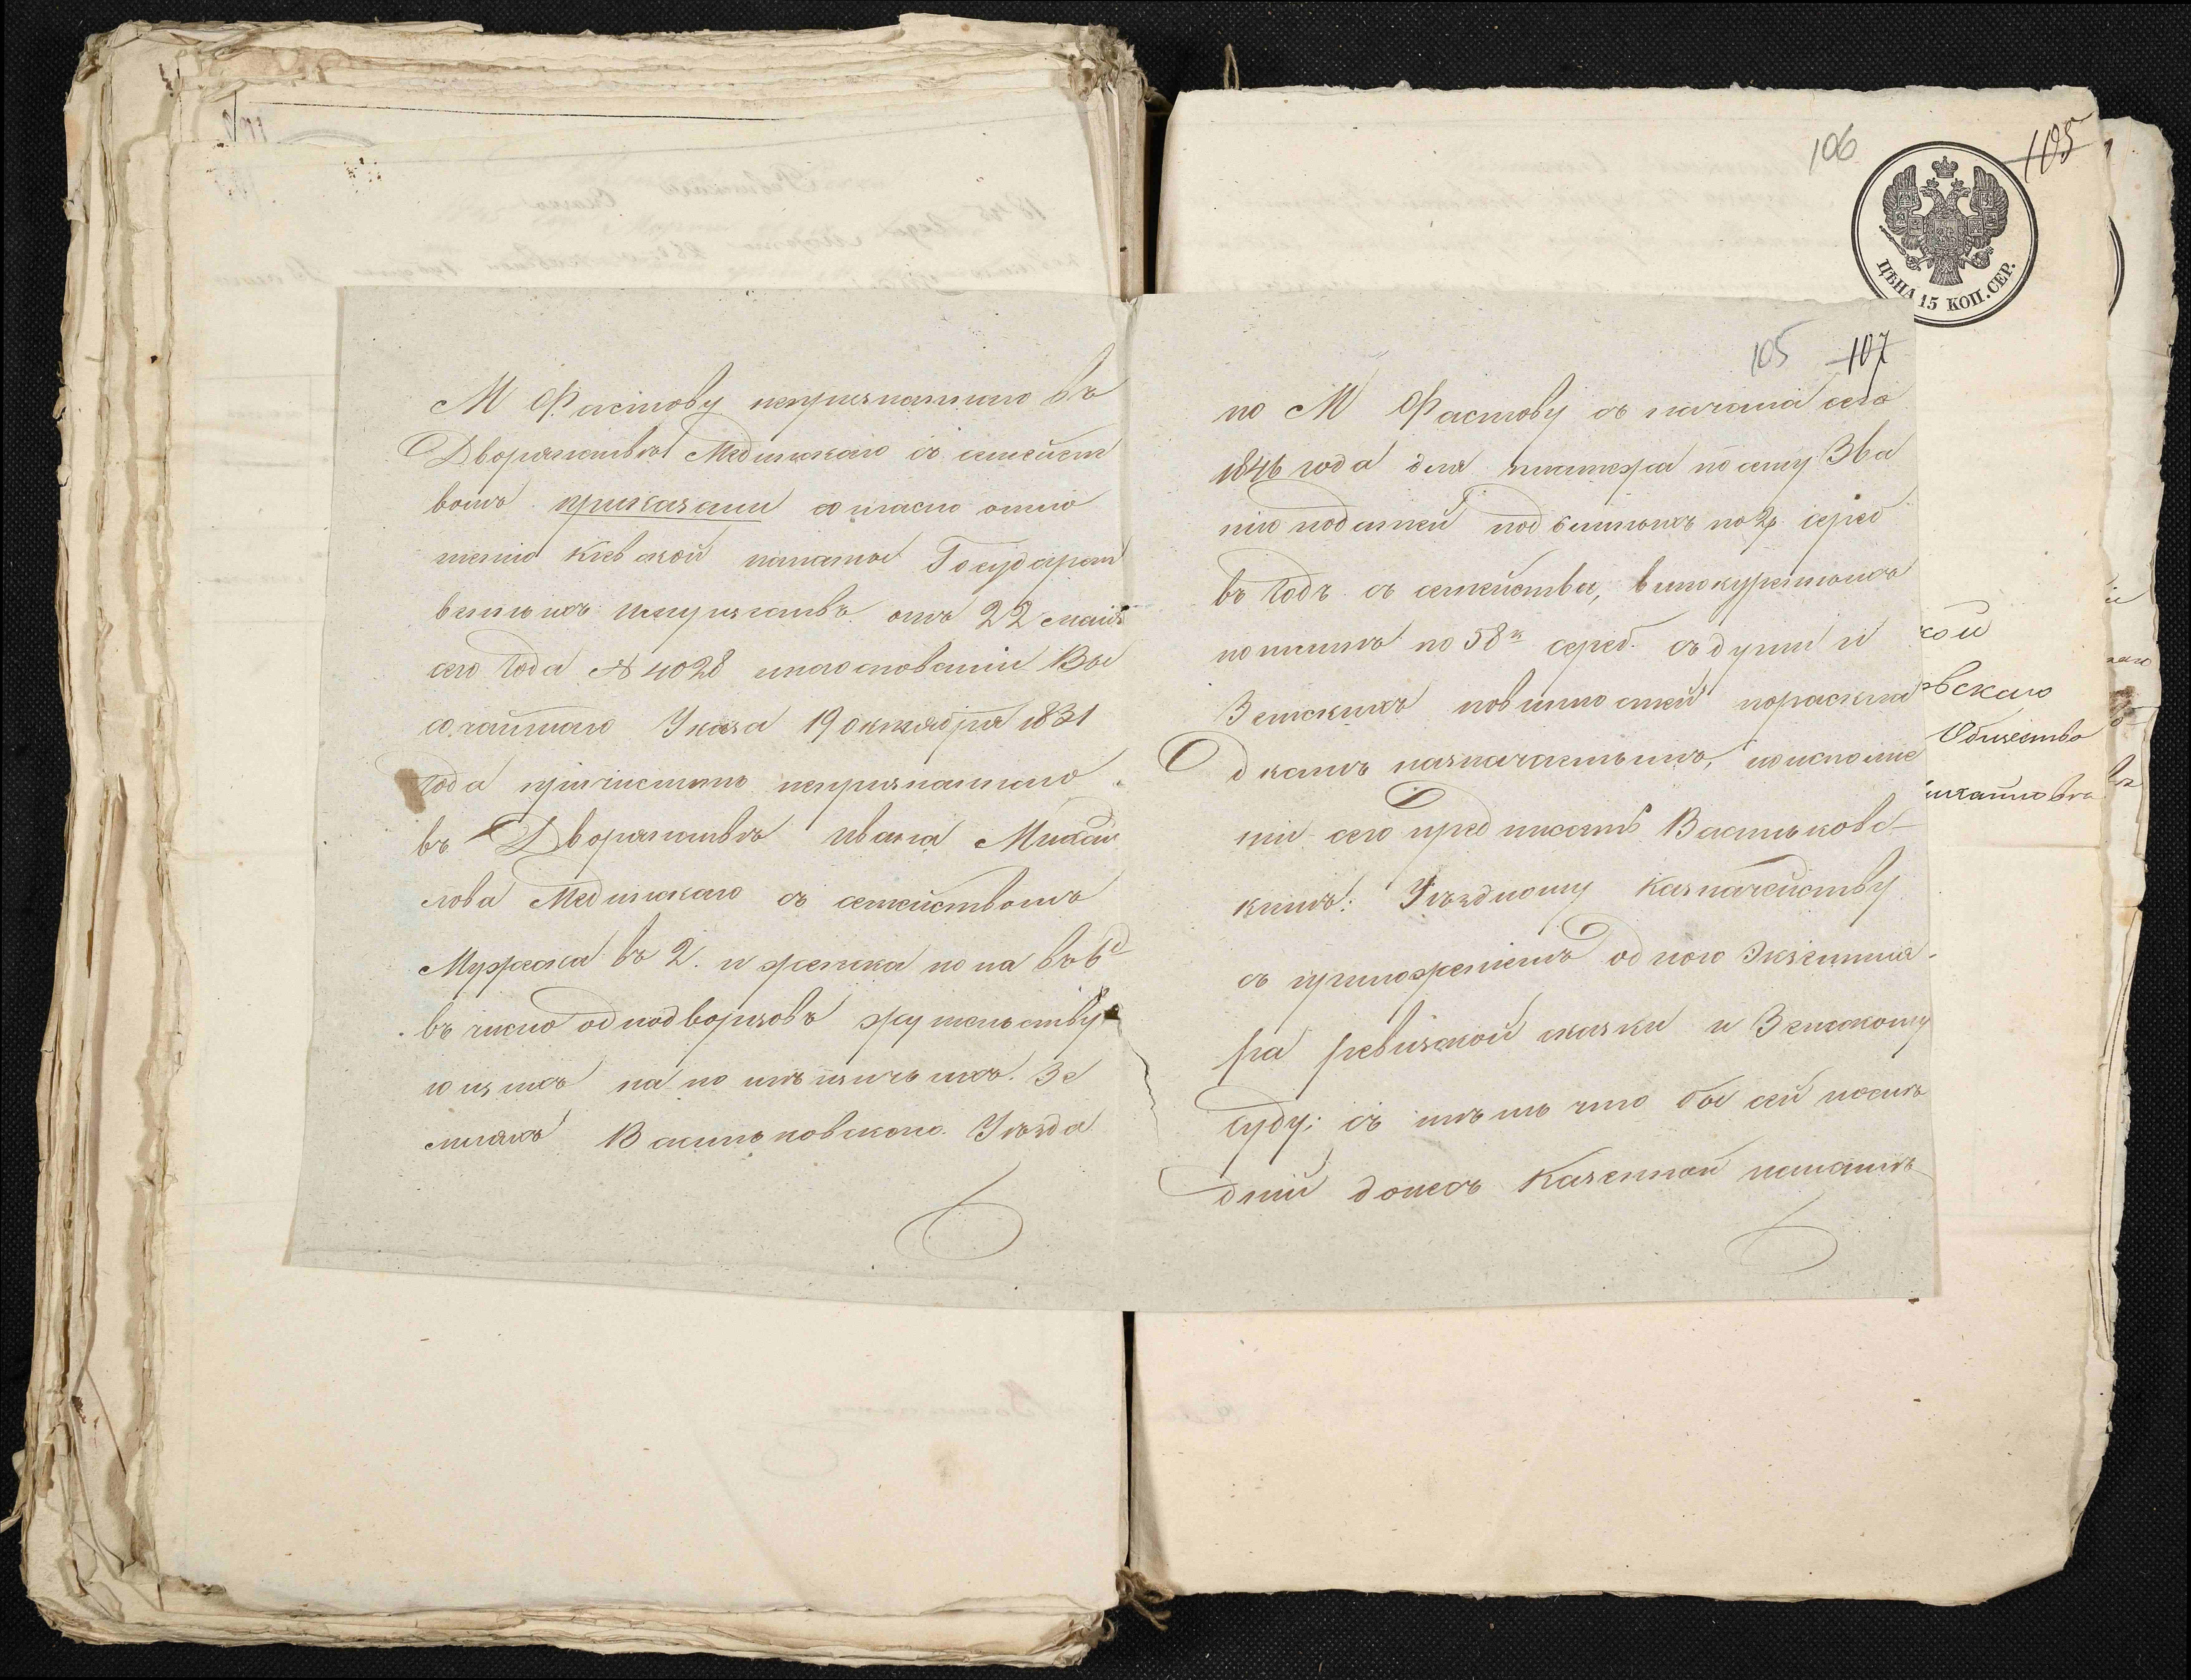 М Фастову непризнаннаго въ
Дворянствѣ Мединскаго съ семейст
вомъ приказали согласно отно
шенію Кіевской палаты Государст
венныхъ имуществъ отъ 22 маія
сего года № 4028 наоснованіи Вы
сочайшаго Указа 19 октября 1831
года причислить непризнаннаго
въ Дворянствѣ Ивана Михай
лова Мединскаго съ семействомъ
Мужеска въ 2. и женска пола въ
въ число однодворцовъ жительству
ющихъ на помѣщичьихъ. Зе
мляхъ Васильковскаго Уѣзда
106
105
ЦѢНА 15 КОП. СЕР.
105 107
по М Фастову съ начала сего
1846 года для платежа по сему Зва
нію податей подымныхъ по 2 р сереб
въ годъ съ семейства, винокуренныхъ
по 58к сереб. съ души и
Земскихъ повинностей пораскла
дкамъ назначаемымъ, поисполне
ніи сего предписать Васильковс-
кимъ: Уѣздному Казначейству
съ приложеніемъ одного Экземпля-
ра ревизской сказки и Земскому
Суду; съ тѣмъ что бы сей послѣ
дній донесъ Казенной палатѣ
кой
вскаго
Общество